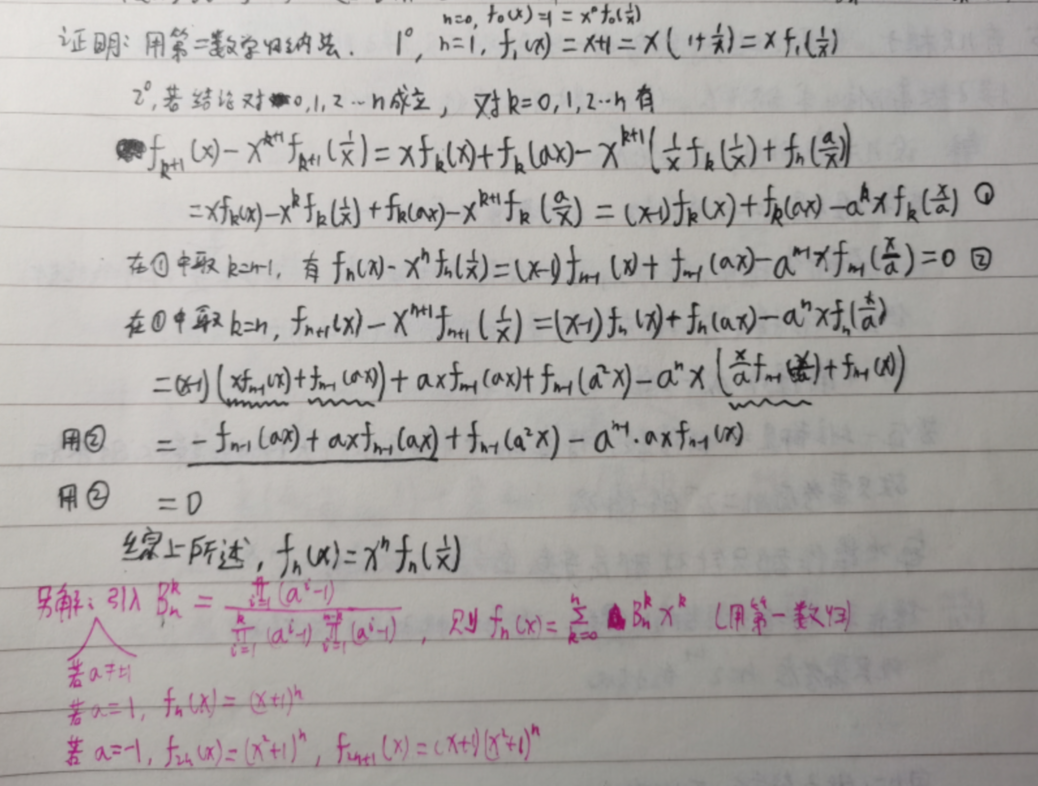 n=0, f₀(x)=1=x⁰f₀(1/x)
证明: 用第二数学归纳法. 1°, n=1, f₁(x)=x+1=x(1+1/x)=xf₁(1/x)
2°, 若结论对0,1,2…n成立, 对k=0,1,2…n有
f_{k+1}(x)-x^{k+1}f_{k+1}(1/x)=xf_k(x)+f_k(ax)-x^{k+1}(1/x f_k(1/x)+f_n(a/x))
=xf_k(x)-x^k f_k(1/x)+f_k(ax)-x^{k+1}f_k(a/x)=(x-1)f_k(x)+f_k(ax)-a^k x f_k(x/a) ①
在①中取k=n-1, 有f_n(x)-x^n f_n(1/x)=(x-1)f_{n-1}(x)+f_{n-1}(ax)-a^{n-1}xf_{n-1}(x/a)=0 ②
在①中取k=n, f_{n+1}(x)-x^{n+1}f_{n+1}(1/x)=(x-1)f_n(x)+f_n(ax)-a^n xf_n(x/a)
=(x-1)(xf_{n-1}(x)+f_{n-1}(ax))+axf_{n-1}(ax)+f_{n-1}(a²x)-a^n x(x/a f_{n-1}(x/a)+f_{n-1}(x))
用② =-f_{n-1}(ax)+axf_{n-1}(ax)+f_{n-1}(a²x)-a^{n-1}·axf_{n-1}(x)
用② =0
综上所述, f_n(x)=x^n f_n(1/x)
另解: 引入 B_n^k = ∏_{i=1}^{n}(a^i-1) / ∏_{i=1}^{k}(a^i-1)∏_{i=1}^{n-k}(a^i-1), 则f_n(x)=∑_{k=0}^{n} B_n^k x^k (用第一数归)
若a≠±1
若a=1, f_n(x)=(x+1)^n
若a=-1, f_{2n}(x)=(x²+1)^n, f_{2n+1}(x)=(x+1)(x²+1)^n